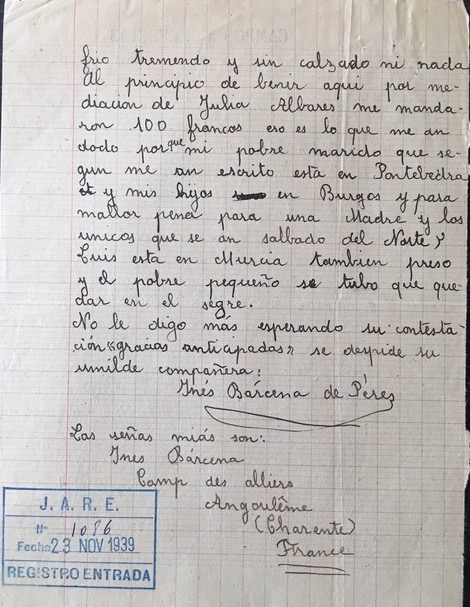 frio tremendo y sin calzado ni nada
Al principio de benir aqui por me-
diacion de Julia Albares me manda-
ron 100 francos eso es lo que me an
dado porque mi pobre marido que se-
gun me an escrito esta en Pontebedra
y mis hijos en Burgos y para
mallor pena para una Madre y los
unicos que se an salbado del Norte y
Luis esta en Murcia tambien preso
y el pobre pequeño se tubo que que-
dar en el segre.
No le digo más esperando su contesta-
ción «gracias anticipadas» se despide su
umilde compañera:
Inés Bárcena de Pérez
Las señas miás son:
Ines Bárcena
Camp des alliers
Angoulême
(Charente)
France
J. A. R. E.
Nº 1086
Fecha 23 NOV 1939
REGISTRO ENTRADA